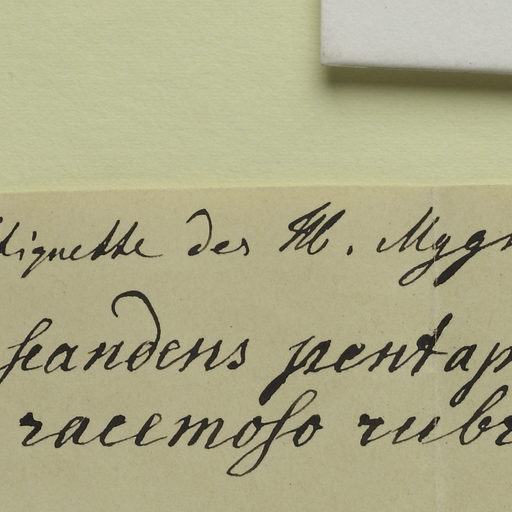 tiquette des H. Mygi
scandens pentap
racemoso rubr